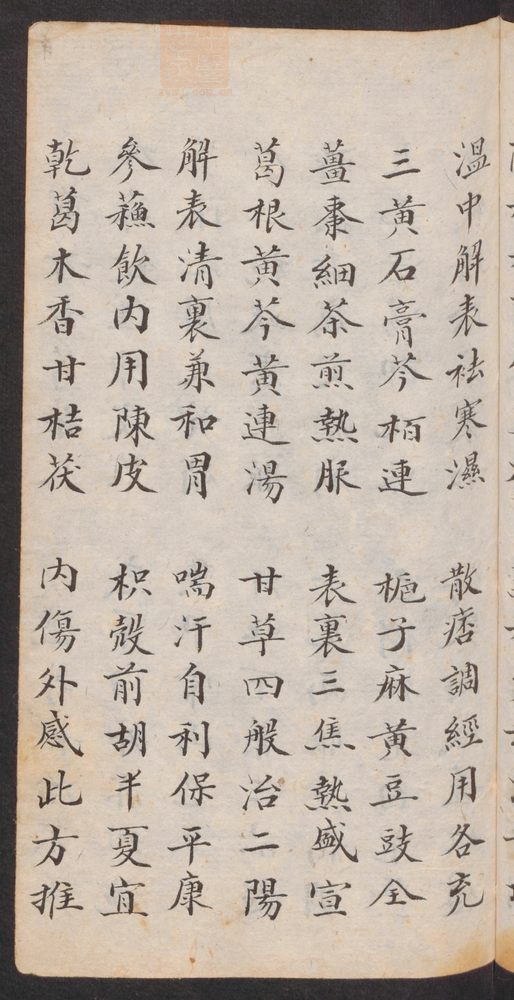 溫中解表祛寒濕　散痞調經用各充
三黃石膏芩栢連　梔子麻黃豆豉全
薑棗細茶煎熱服　表裏三焦熱盛宣
葛根黃芩黃連湯　甘草四般治二陽
解表清裏兼和胃　喘汗自利保平康
參蘓飲內用陳皮　枳殼前胡半夏宜
乾葛木香甘桔茯　內傷外感此方推